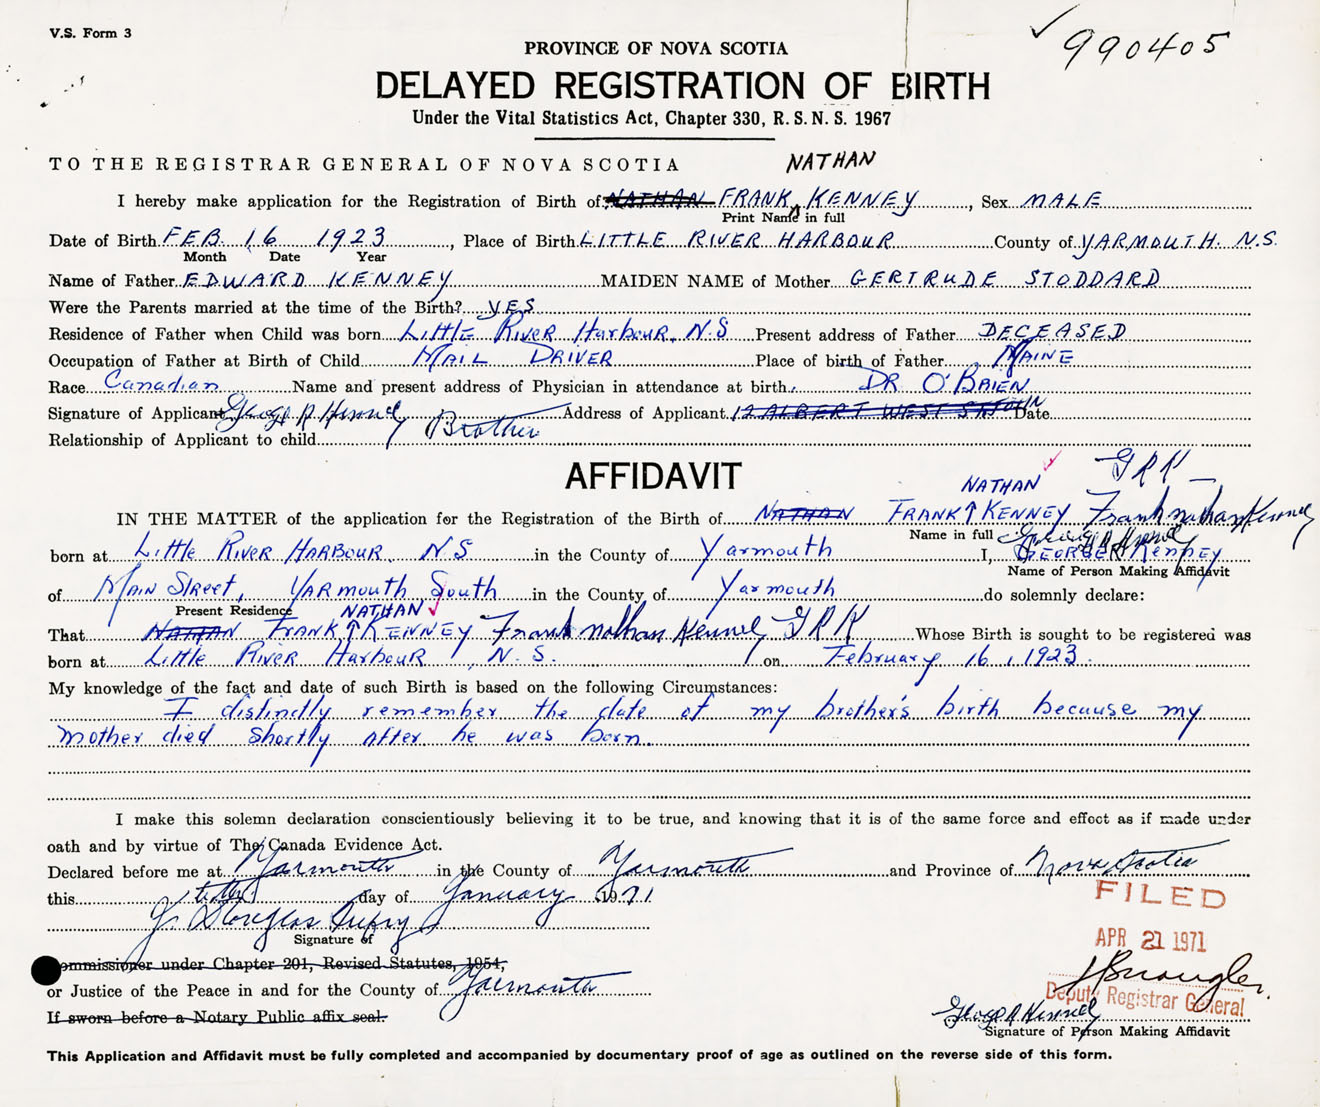 V.S. Form 3
990405
PROVINCE OF NOVA SCOTIA
DELAYED REGISTRATION OF BIRTH
Under the Vital Statistics Act, Chapter 330, R. S. N. S. 1967
TO THE REGISTRAR GENERAL OF NOVA SCOTIA
NATHAN
I hereby make application for the Registration of Birth of NATHAN FRANK KENNEY, Sex MALE
Print Name in full
Date of Birth FEB. 16 1923, Place of Birth LITTLE RIVER HARBOUR County of YARMOUTH. N.S.
Month Date Year
Name of Father EDWARD KENNEY MAIDEN NAME of Mother GERTRUDE STODDARD
Were the Parents married at the time of the Birth? YES
Residence of Father when Child was born LITTLE RIVER HARBOUR, N.S Present address of Father DECEASED
Occupation of Father at Birth of Child MAIL DRIVER Place of birth of Father MAINE
Race Canadian Name and present address of Physician in attendance at birth. DR O'BRIEN
Signature of Applicant Address of Applicant 12 ALBERT WEST ST JOHN Date
Brother
Relationship of Applicant to child
AFFIDAVIT
NATHAN GRK
IN THE MATTER of the application for the Registration of the Birth of NATHAN FRANK KENNEY Frank nathan Kenney
Name in full
born at LITTLE RIVER HARBOUR, N.S in the County of Yarmouth I, GEORGE R Kenney
Name of Person Making Affidavit
of MAIN STREET, YARMOUTH South in the County of Yarmouth do solemnly declare:
Present Residence NATHAN
That NATHAN FRANK KENNEY Frank nathan Kenney GRK Whose Birth is sought to be registered was
born at LITTLE RIVER HARBOUR, N.S. on February 16, 1923.
My knowledge of the fact and date of such Birth is based on the following Circumstances:
I distinctly remember the date of my brother's birth because my
mother died shortly after he was born.
I make this solemn declaration conscientiously believing it to be true, and knowing that it is of the same force and effect as if made under
oath and by virtue of The Canada Evidence Act.
Declared before me at Yarmouth in the County of Yarmouth and Province of Nova Scotia
this day of January 1971
FILED
Signature of
APR 21 1971
Commissioner under Chapter 201, Revised Statutes, 1954,
or Justice of the Peace in and for the County of Yarmouth
Deputy Registrar General
If sworn before a Notary Public affix seal.
George R Kenney
Signature of Person Making Affidavit
This Application and Affidavit must be fully completed and accompanied by documentary proof of age as outlined on the reverse side of this form.